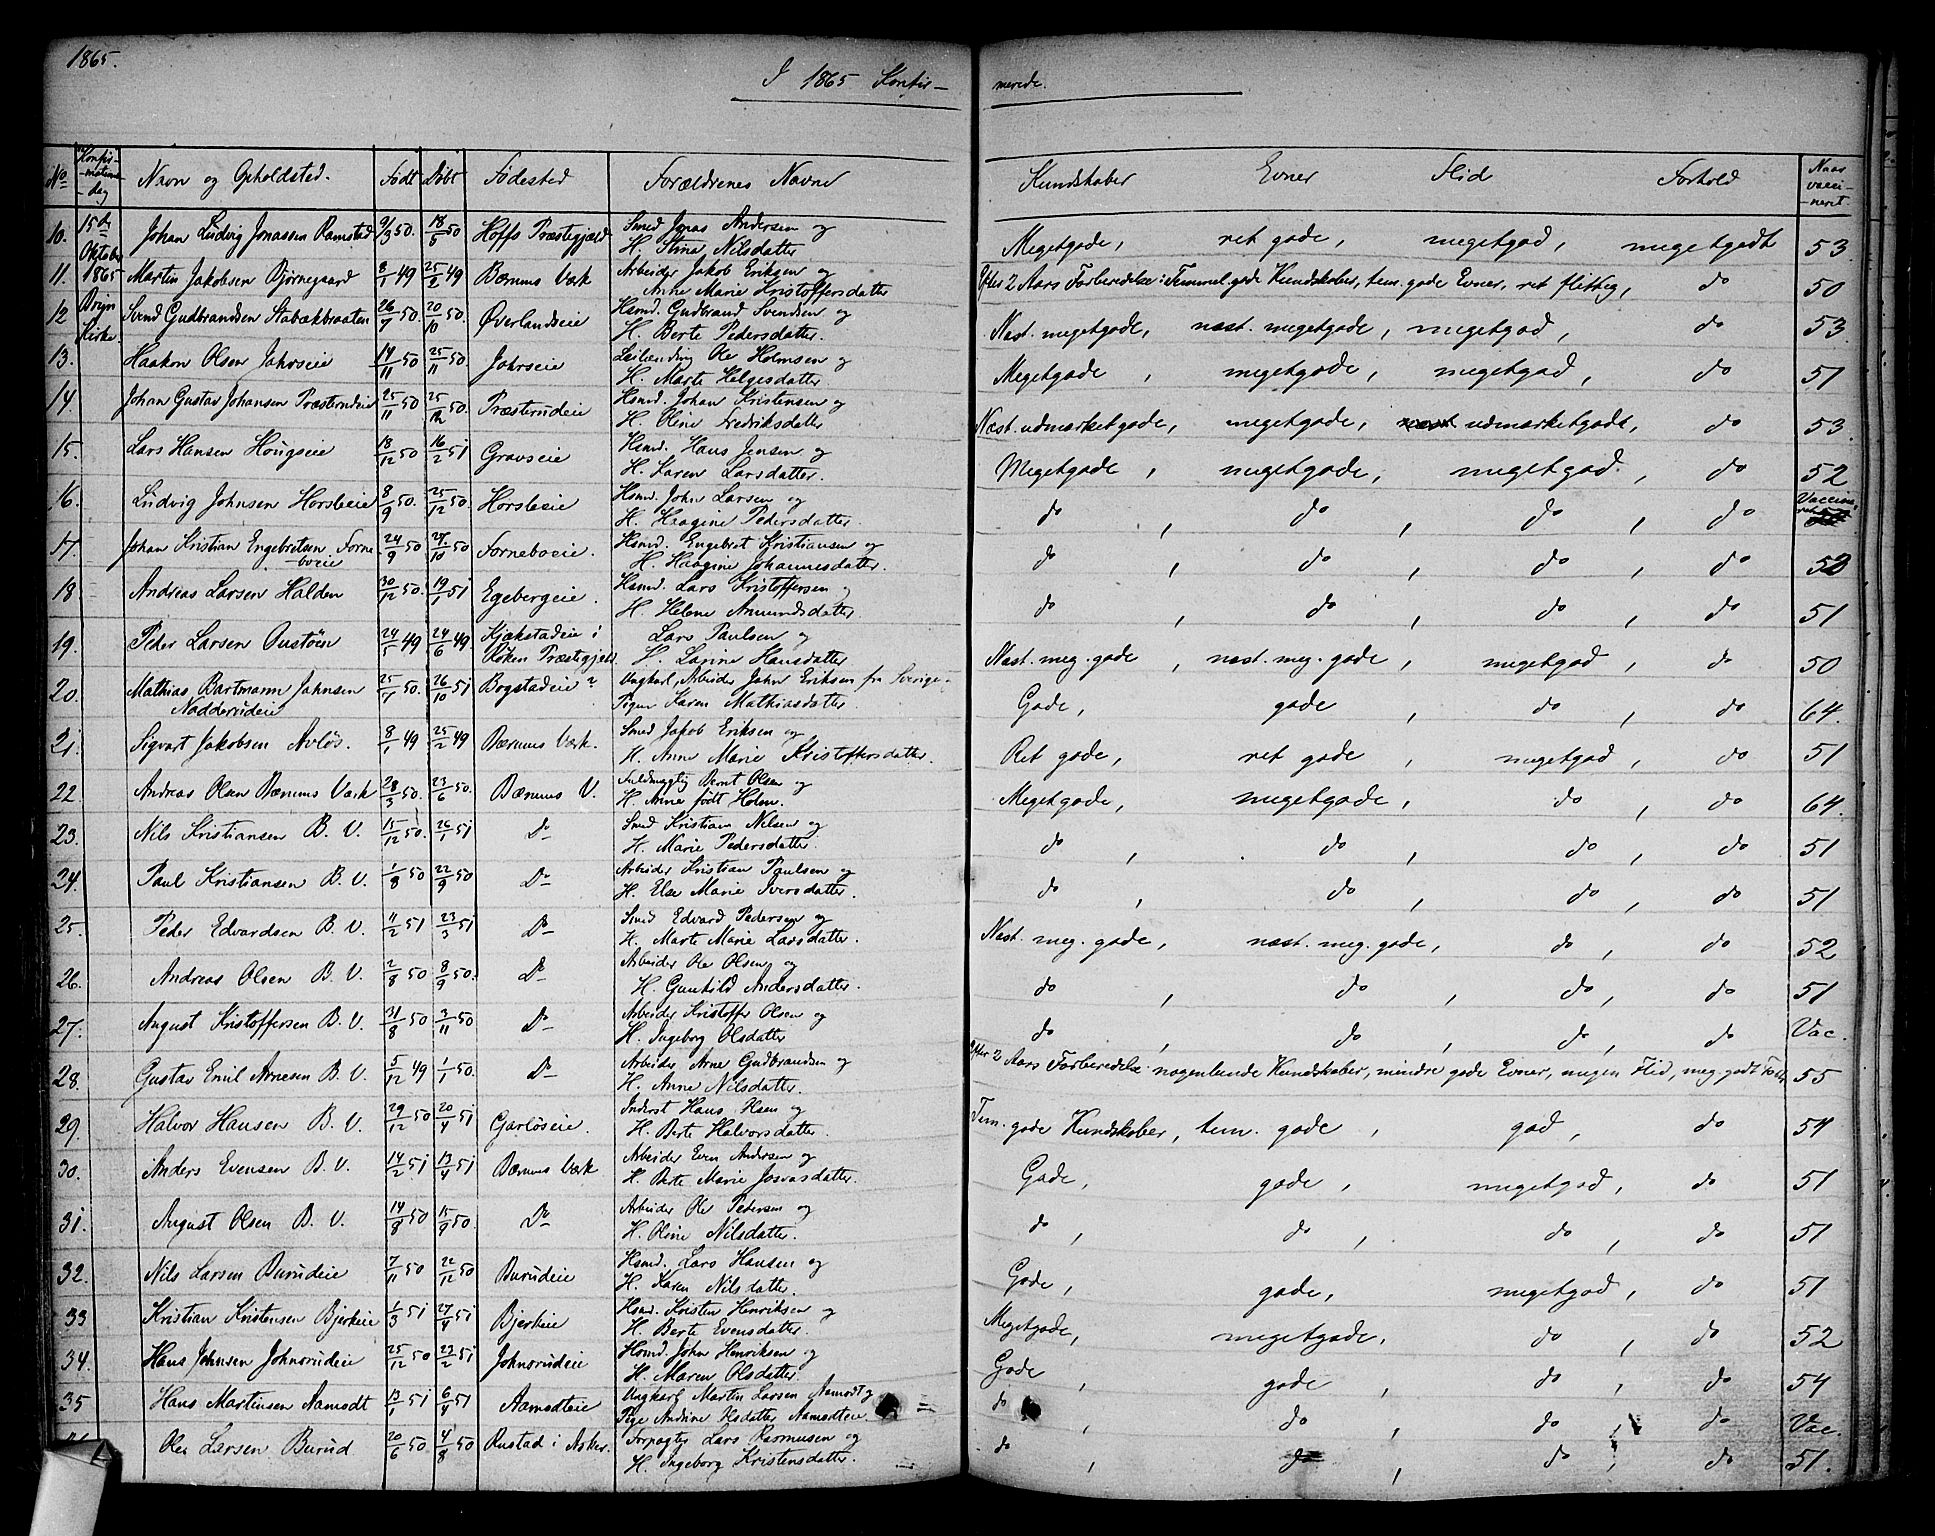 1865.
I 1865 Konfir- merede.
No Konfir-mations-dag Navn og Opholdsted. Født Døbt Fødested Forældrenes Navne Kundskaber Evner Flid Forhold Naar vacci-neret
10. 15de Johan Ludvig Jonassen Ramstad 9/3 50. 18/5 50 Hoffs Præstegjeld Smed Jonas Andersen og Megetgode, ret gode, megetgod, megetgodt 53.
Oktober H. Stina Nilsdatter.
11. 1865 Martin Jakobsen Bjørnegaard 8/1 49 25/2 49 Bærums Værk Arbeider Jakob Eriksen og Efter 2 Aars Forberedelse: Temmel. gode Kundskaber, tem. gode Evner, ret flittig, do 50
Anne Marie Kristoffersdatter
12 Bryn Svend Gudbrandsen Stabækbraaten 26/7 50. 20/10 50. Øverlandseie Hsmd. Gudbrand Svendsen og Næst. megetgode, næst. megetgode, megetgod, do 53.
Kirke. H. Berte Pedersdatter.
13. Haakon Olsen Jahrseie 14/11 50 25/11 50. Jahrseie Leilending Ole Holmsen og Megetgode, megetgode, megetgod, do 51
H. Marte Helgesdatter.
14. Johan Gustav Johansen Præsterudeie 25/11 50 25/12 50. Præsterudeie Hsmd. Johan Kristensen og Næst. udmærketgode, megetgode, udmærketgode, do 53.
H. Oline Fredriksdatter
15. Lars Hansen Hougseie 18/12 50 16/2 51 Gravseie Hsmd. Hans Jensen og Megetgode, megetgode, megetgod, do 52
H. Karen Larsdatter.
16. Ludvig Johnsen Horsleeie 8/9 50. 25/12 50. Horsleeie Hsmd. John Larsen og do, do, do, do Vaccine-ret
H. Haagine Pedersdatter.
17. Johan Kristian Engebretsen Forne-boeie 24/9 50 27/10 50 Forneboeie. Hsmd. Engebret Kristiansen og do, do, do, do 52
H. Haagine Johannesdatter.
18 Andreas Larsen Halden 30/12 50. 19/1 51 Egebergeie. Hsmd. Lars Kristoffersen og do, do, do, do 51
H. Helene Amundsdatter
19. Peder Larsen Oustøen 24/1 49 24/6 49 Kjækstadeie i Lars Paulsen og Næst. meg. gode, næst. meg. gode, megetgod, do 50
Røken Præstegjeld. H. Larine Hansdatter
20. Mathias Bartmann Jahnsen 25/7 50. 26/10 51 Bogstadeie? Ungkarl, Arbeider John Eriksen fra Sverige Gode, gode, do, do 64.
Nadderudeie Pigen Karen Mathiasdatter.
21. Sigvart Jakobsen Avløs. 8/1 49 25/2 49 Bærums Værk. Smed Jakob Eriksen og Ret gode, ret gode, megetgod, do 51
H. Anne Marie Kristoffersdatter.
22 Andreas Olsen Bærums Værk 28/3 50. 23/6 50. Bærums V. Fuldmægtig Bernt Olsen og Megetgode, megetgode, do, do 64.
H. Anne født Holm.
23. Nils Kristiansen B. V. 15/12 50. 26/1 51 Do Smed Kristian Nelsen og do, do, do, do 51
H. Marie Pedersdatter.
24. Paul Kristiansen B. V. 1/8 50 22/9 50 Do Arbeider Kristian Paulsen og do, do, do, do 51
H. Else Marie Iversdatter.
25. Peder Edvardsen B. V. 11/2 51 23/3 51 Do Smed Edvard Pedersen og Næst. meg. gode, næst. meg. gode, do, do 52
H. Marte Marie Larsdatter.
26. Andreas Olsen B. V. 2/8 50 8/9 50. Do Arbeider Ole Olsen og do, do, do, do 51
H. Gunhild Andersdatter.
27. August Kristoffersen B. V. 31/8 50 3/11 50 Do Arbeider Kristoffer Olsen og do, do, do, do Vac.
H. Ingeborg Olsdatter
28. Gustav Emil Arnesen B. V. 5/12 49 1/1 50. Do Arbeider Arne Gudbrandsen og Efter 2 Aars Forberedelse: nogenlunde Kundskaber, mindre gode Evner, megen Flid, meg. godt Forh. 55
H. Anne Nilsdatter.
29. Halvor Hansen B. V. 29/12 50 20/4 51 Garløseie. Inderst Hans Olsen og Tem. gode Kundskaber, tem. gode, god, do 54
H. Berte Halvorsdatter.
30. Anders Evensen B. V. 14/2 51 13/4 51 Bærums Værk Arbeider Even Andersen og Gode, gode, megetgod, do 51
H. Berte Marie Josvasdatter.
31. August Olsen B. V. 14/8 50 15/9 50. Do Arbeider Ole Pedersen og do, do, do, do 51
H. Oline Nilsdatter.
32. Nils Larsen Burudeie 7/11 50 22/12 50 Burudeie Hsmd. Lars Hansen og Gode, gode, megetgod, do 51
H. Karen Nilsdatter.
33 Kristian Kristensen Bjerkeie 1/3 51 27/4 51 Bjerkeie Hsmd. Kristen Henriksen og Megetgode, megetgode, do, do 52
H. Berte Evensdatter.
34. Hans Johnsen Johnsrudeie 25/12 50 23/2 51 Johnsrudeie Hsmd. John Henriksen og Gode, gode, do, do 54
H. Maren Olsdatter.
35 Hans Martinsen Aamodt 13/1 51 6/4 51 Aamodteie Ungkarl Martin Larsen Aamodt og do, do, do, do Vac.
Pige Andrine Olsdatter Aamodteie.
Ole Larsen Burud 20/6 50 4/8 50 Rustad i Asker. Forpagter Lars Rasmusen og do, do, do, do 51.
H. Ingeborg Kristensdatter.